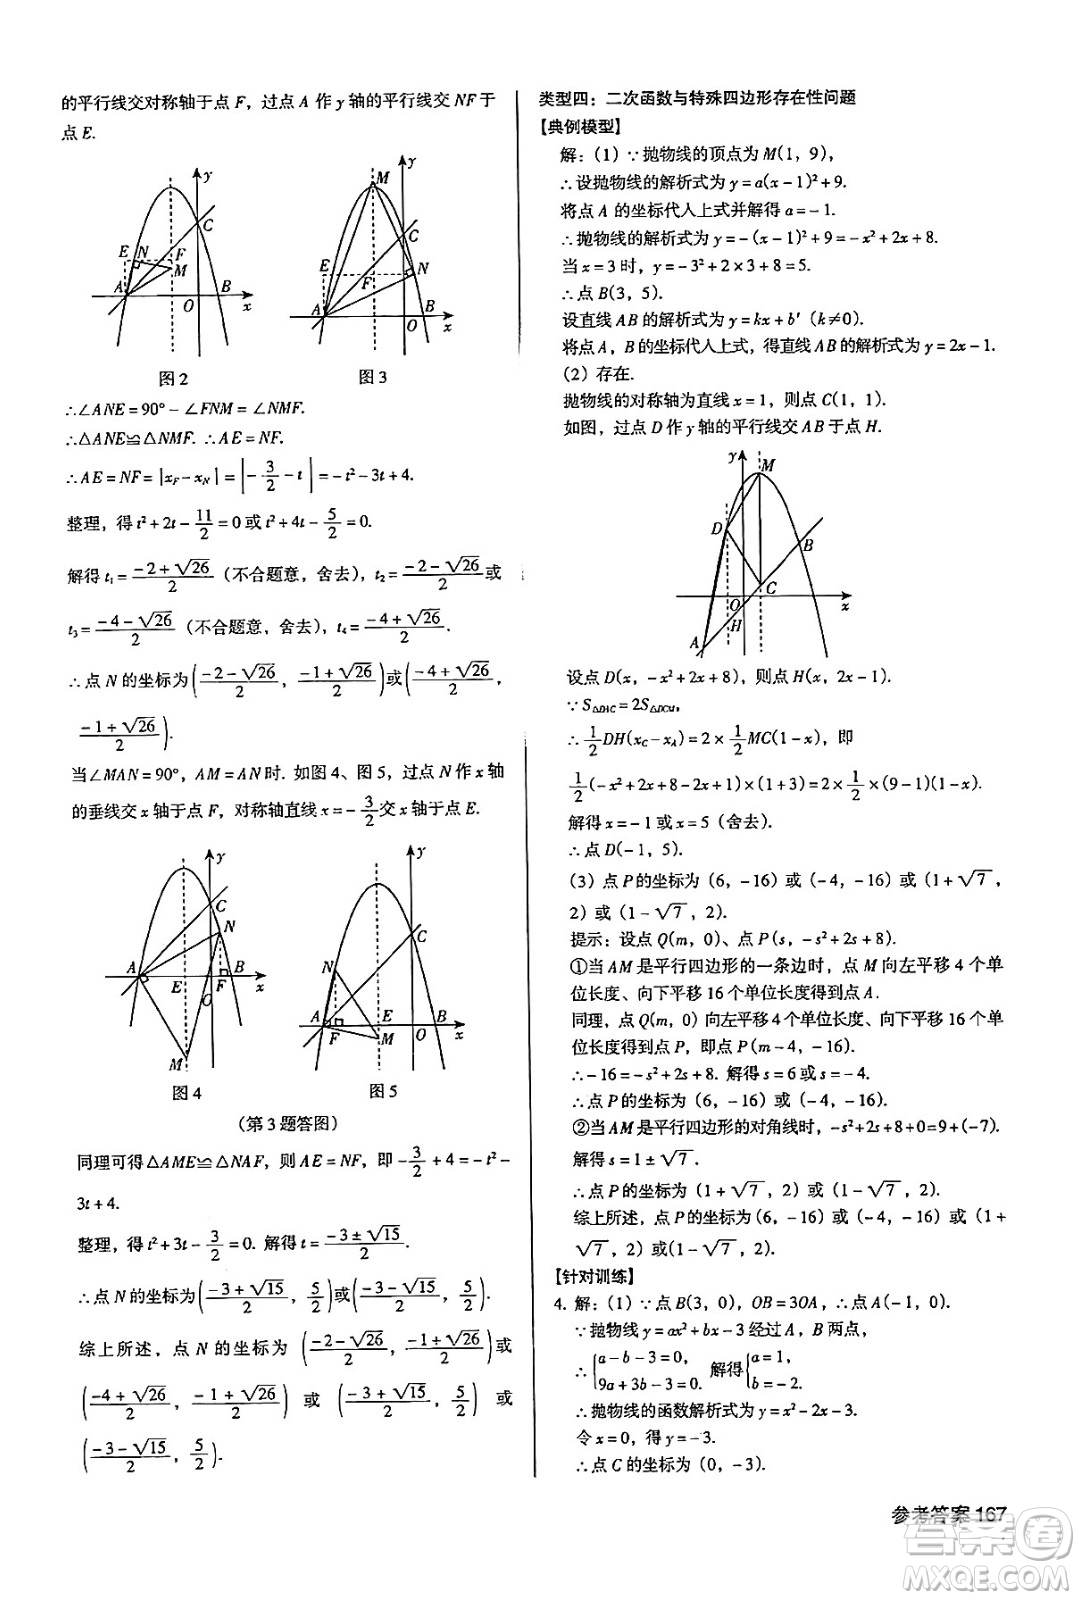 的平行线交对称轴于点 F，过点 A 作 y 轴的平行线交 NF 于
点 E.
y
M
C
E N F
M
A O B x
图 2
y
M
C
E F N
A O B x
图 3
∴∠ANE = 90° - ∠FNM = ∠NMF.
∴△ANE≌△NMF. ∴AE = NF.
∴AE = NF = |x_F - x_N| = |-3/2 - t| = -t² - 3t + 4.
整理，得 t² + 2t - 11/2 = 0 或 t² + 4t - 5/2 = 0.
解得 t₁ = (-2 + √26)/2（不合题意，舍去），t₂ = (-2 - √26)/2 或
t₃ = (-4 - √26)/2（不合题意，舍去），t₄ = (-4 + √26)/2.
∴点 N 的坐标为((-2 - √26)/2，(-1 + √26)/2)或((-4 + √26)/2，
(-1 + √26)/2).
当∠MAN = 90°，AM = AN 时. 如图 4、图 5，过点 N 作 x 轴
的垂线交 x 轴于点 F，对称轴直线 x = -3/2 交 x 轴于点 E.
y
C
N
A E O F B x
M
图 4
y
C
N
A F E M O B x
图 5
(第 3 题答图)
同理可得△AME≌△NAF，则 AE = NF，即 -3/2 + 4 = -t² -
3t + 4.
整理，得 t² + 3t - 3/2 = 0. 解得 t = (-3 ± √15)/2.
∴点 N 的坐标为((-3 + √15)/2，5/2)或((-3 - √15)/2，5/2).
综上所述，点 N 的坐标为((-2 - √26)/2，(-1 + √26)/2)或
((-4 + √26)/2，(-1 + √26)/2) 或 ((-3 + √15)/2，5/2) 或
((-3 - √15)/2，5/2).
类型四：二次函数与特殊四边形存在性问题
【典例模型】
解：(1) ∵抛物线的顶点为 M(1，9)，
∴设抛物线的解析式为 y = a(x - 1)² + 9.
将点 A 的坐标代人上式并解得 a = -1.
∴抛物线的解析式为 y = -(x - 1)² + 9 = -x² + 2x + 8.
当 x = 3 时，y = -3² + 2×3 + 8 = 5.
∴点 B(3，5).
设直线 AB 的解析式为 y = kx + b′（k≠0）.
将点 A，B 的坐标代人上式，得直线 AB 的解析式为 y = 2x - 1.
(2) 存在.
抛物线的对称轴为直线 x = 1，则点 C(1，1).
如图，过点 D 作 y 轴的平行线交 AB 于点 H.
y
M
D
B
C
O x
H
A
设点 D(x，-x² + 2x + 8)，则点 H(x，2x - 1).
∵S△DHC = 2S△DCM，
∴1/2 DH(x_C - x_A) = 2 × 1/2 MC(1 - x)，即
1/2(-x² + 2x + 8 - 2x + 1)(1 + 3) = 2 × 1/2 × (9 - 1)(1 - x).
解得 x = -1 或 x = 5（舍去）.
∴点 D(-1，5).
(3) 点 P 的坐标为 (6，-16) 或 (-4，-16) 或 (1 + √7，
2) 或 (1 - √7，2).
提示：设点 Q(m，0)、点 P(s，-s² + 2s + 8).
①当 AM 是平行四边形的一条边时，点 M 向左平移 4 个单
位长度、向下平移 16 个单位长度得到点 A.
同理，点 Q(m，0) 向左平移 4 个单位长度、向下平移 16 个单
位长度得到点 P，即点 P(m - 4，-16).
∴-16 = -s² + 2s + 8. 解得 s = 6 或 s = -4.
∴点 P 的坐标为 (6，-16) 或 (-4，-16).
②当 AM 是平行四边形的对角线时，-s² + 2s + 8 + 0 = 9 + (-7).
解得 s = 1 ± √7.
∴点 P 的坐标为 (1 + √7，2) 或 (1 - √7，2).
综上所述，点 P 的坐标为(6，-16) 或 (-4，-16) 或 (1 +
√7，2) 或(1 - √7，2).
【针对训练】
4. 解：(1) ∵点 B(3，0)，OB = 3OA，∴点 A(-1，0).
∵抛物线 y = ax² + bx - 3 经过 A，B 两点，
∴{a - b - 3 = 0， 解得{a = 1，
9a + 3b - 3 = 0. b = -2.
∴抛物线的函数解析式为 y = x² - 2x - 3.
令 x = 0，得 y = -3.
∴点 C 的坐标为 (0，-3).
参考答案 167
答案卷
MXQE.COM